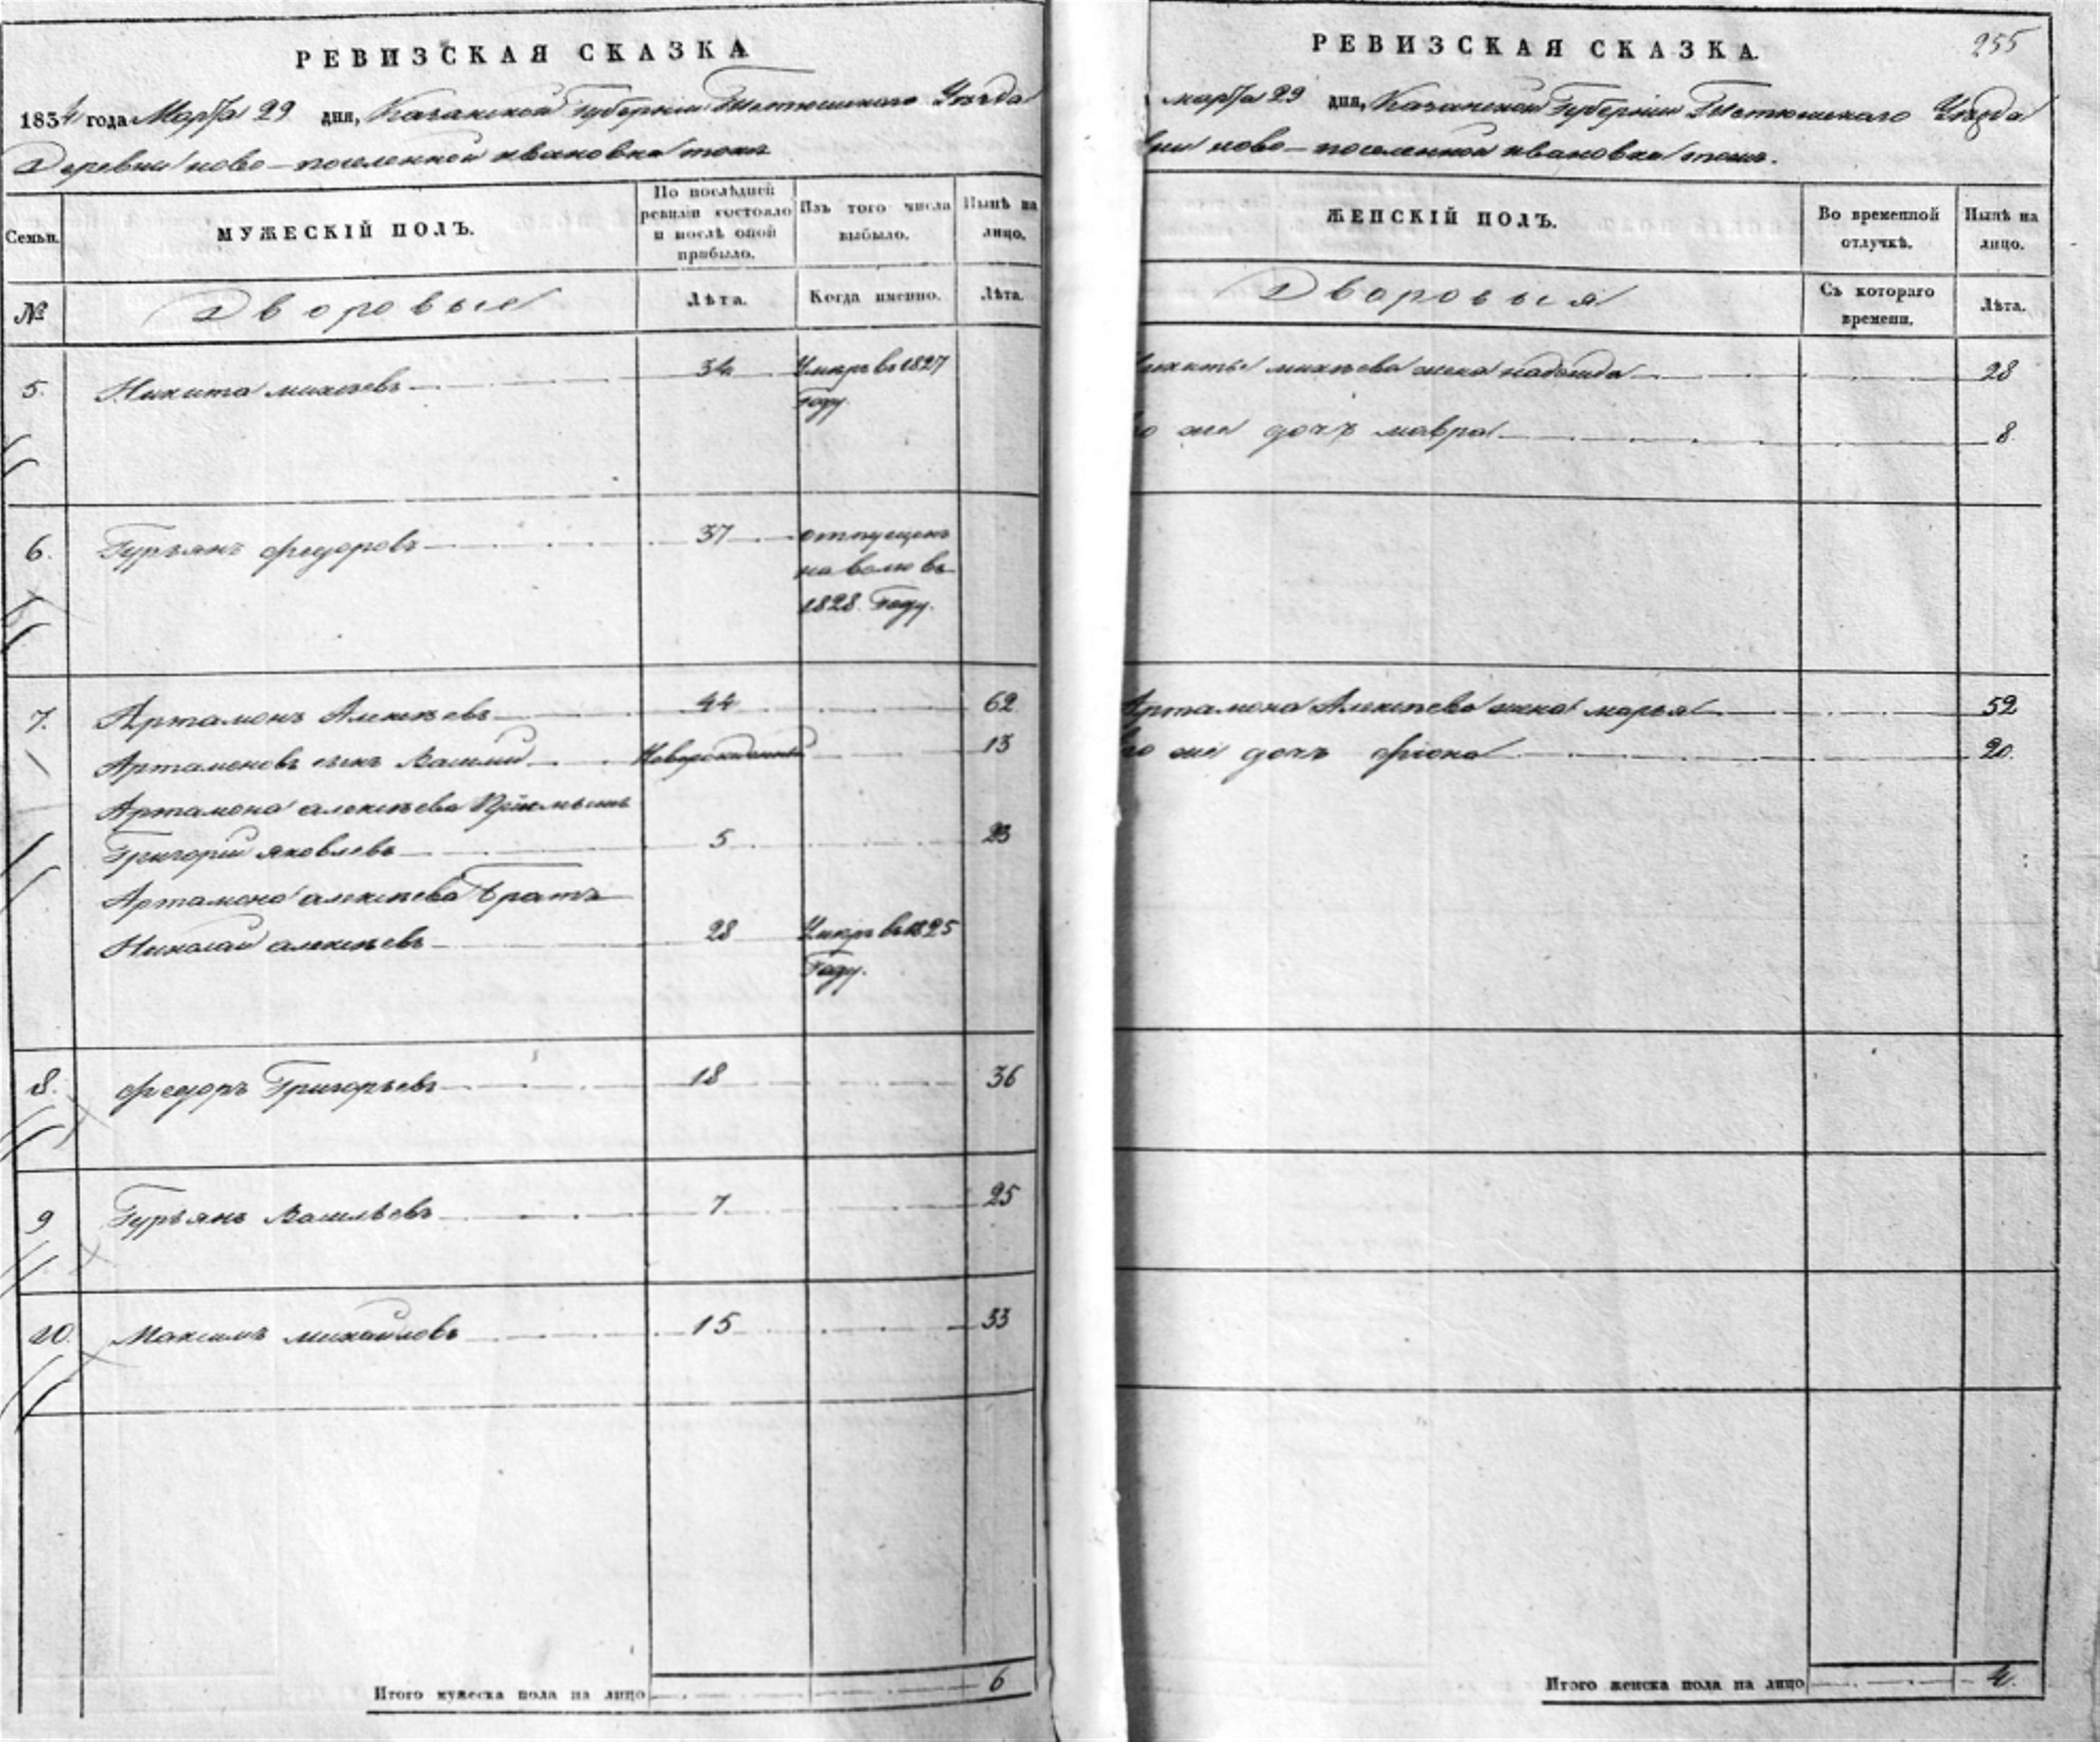 РЕВИЗСКАЯ СКАЗКА
1834 года Марта 29 дня, Казанской Губернии Тетюшскаго Уѣзда
Деревни ново-поселенной ивановка тожъ
Семьи.
МУЖЕСКІЙ ПОЛЪ.
По послѣдней ревизіи состояло и послѣ оной прибыло.
Изъ того числа выбыло.
Нынѣ на лицо.
№
Дворовые
Лѣта.
Когда именно.
Лѣта.
5. Никита михеевъ 34 Умеръ в 1827
Году.
6. Гурьянъ федоровъ 37 отпущенъ
на волю въ
1828. Году.
7. Артамонъ Алексѣевъ 44 62
Артамоновъ сынъ Василий Новорожденный 13
Артамона алексѣева Приемышъ
Григорий яковлевъ 5 23
Артамона алексѣева Братъ
Николай алексѣевъ 28 Умеръ в 1825
Году.
8. федоръ Григорьевъ 18 36
9 Гурьянъ Васильевъ 7 25
10. Максимъ михайловъ 15 33
Итого мужеска пола на лицо 6
РЕВИЗСКАЯ СКАЗКА.
255
марта 29 дня, Казанской Губернии Тетюшскаго Уѣзда
ново-поселенной ивановка тожъ.
ЖЕНСКІЙ ПОЛЪ.
Во временной отлучкѣ.
Нынѣ на лицо.
Дворовыя
Съ котораго времени.
Лѣта.
михеева жена надежда 28
же дочь мавра 8
Артамона Алексѣева жена марья 52
же дочь фіона 20.
Итого женска пола на лицо 4.